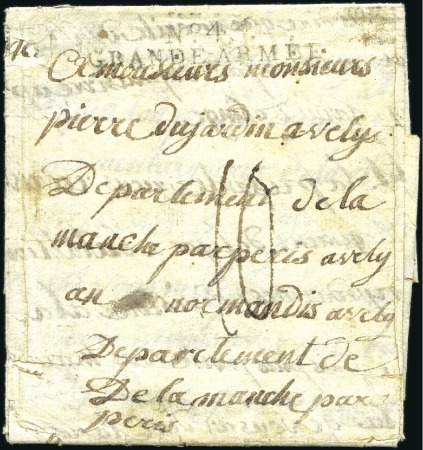 GRANDE ARMÉE
A monsieurs monsieurs
pierre dujardin a vely
Departement de la
manche par peris a vely
an normandis a vely
Departement de
De la manche par
peris
10